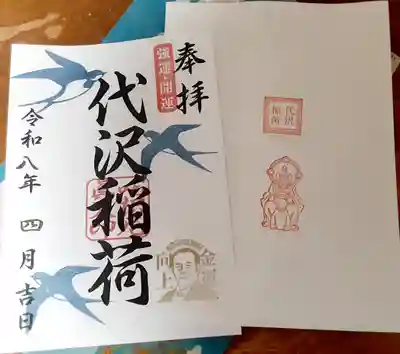 奉拝
強運・開運
代沢稲荷
令和八年 四月吉日
金運
向上
代沢
稲荷